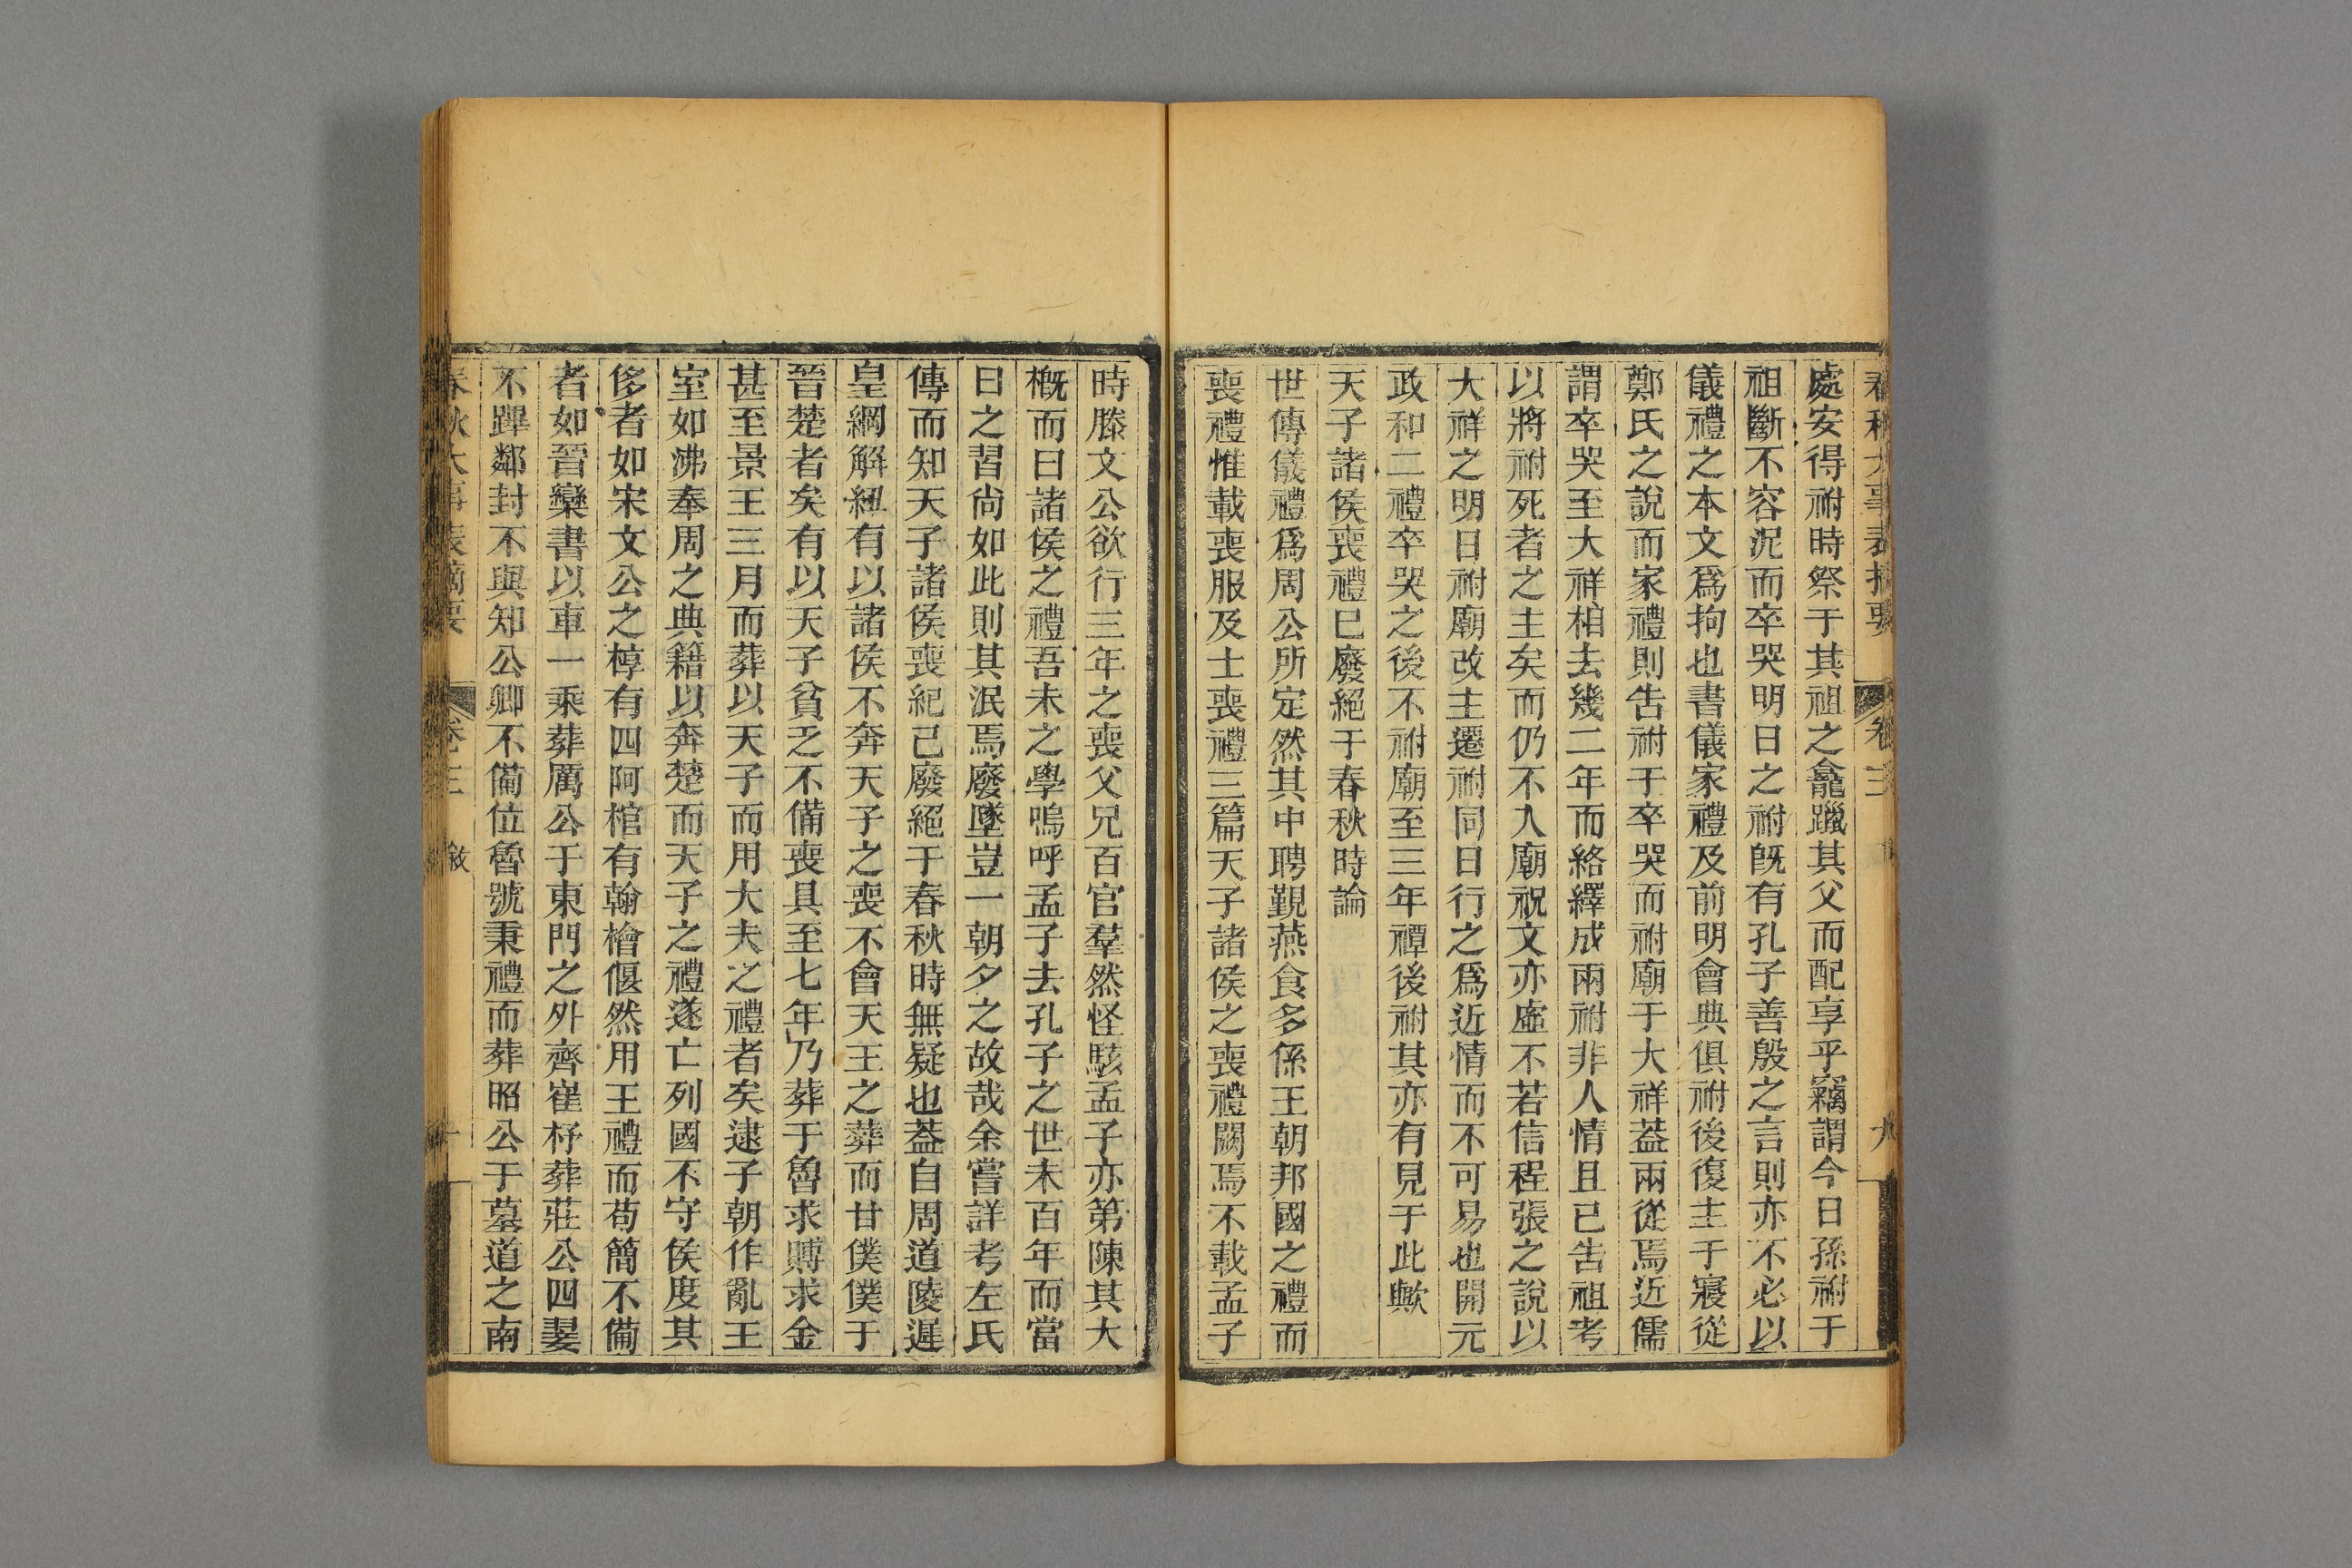 春秋大事表摘要 卷三 九
處安得祔時祭于其祖之龕躐其父而配享乎竊謂今日孫祔于
祖斷不容泥而卒哭明日之祔旣有孔子善殷之言則亦不必以
儀禮之本文爲拘也書儀家禮及前明會典俱祔後復主于寢從
鄭氏之說而家禮則告祔于卒哭而祔廟于大祥葢兩從焉近儒
謂卒哭至大祥相去幾二年而絡繹成兩祔非人情且已告祖考
以將祔死者之主矣而仍不入廟祝文亦虛不若信程張之說以
大祥之明日祔廟改主遷祔同日行之爲近情而不可易也開元
政和二禮卒哭之後不祔廟至三年禫後祔其亦有見于此歟
天子諸侯喪禮已廢絕于春秋時論
世傳儀禮爲周公所定然其中聘覲燕食多係王朝邦國之禮而
喪禮惟載喪服及士喪禮三篇天子諸侯之喪禮闕焉不載孟子
時滕文公欲行三年之喪父兄百官羣然怪駭孟子亦第陳其大
概而曰諸侯之禮吾未之學嗚呼孟子去孔子之世未百年而當
日之習尚如此則其泯焉廢墜豈一朝夕之故哉余嘗詳考左氏
傳而知天子諸侯喪紀已廢絕于春秋時無疑也葢自周道陵遲
皇綱解紐有以諸侯不奔天子之喪不會天王之葬而甘僕僕于
晉楚者矣有以天子貧乏不備喪具至七年乃葬于魯求賻求金
甚至景王三月而葬以天子而用大夫之禮者矣逮子朝作亂王
室如沸奉周之典籍以奔楚而天子之禮遂亡列國不守侯度其
侈者如宋文公之椁有四阿棺有翰檜偃然用王禮而苟簡不備
者如晉欒書以車一乘葬厲公于東門之外齊崔杼葬莊公四翣
不蹕鄰封不與知公卿不備位魯號秉禮而葬昭公于墓道之南
春秋大事表摘要 卷三 敘 十